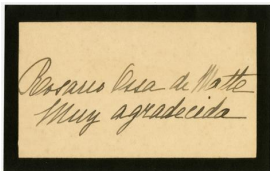 Rosario Ossa de Matte
Muy agradecida